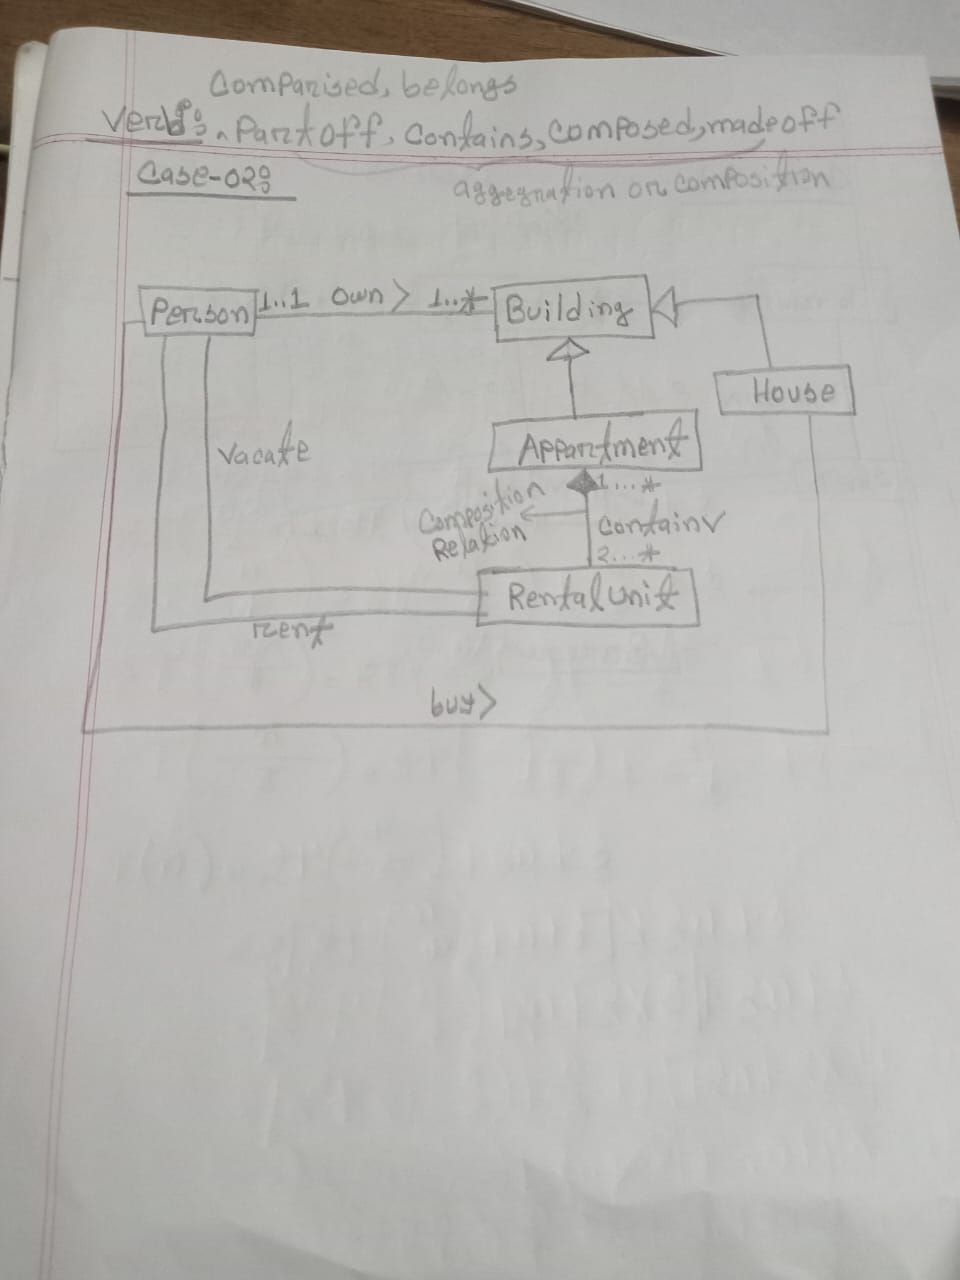 Comparised, belongs
Verb: Part off, Contains, Composed, made off
Case-02:
aggegration or composition
Person 1..1 own > 1..* Building
House
Vacate
Appartment
1...*
Composition
Relation
Contain v
2...*
Rental unit
rent
buy >